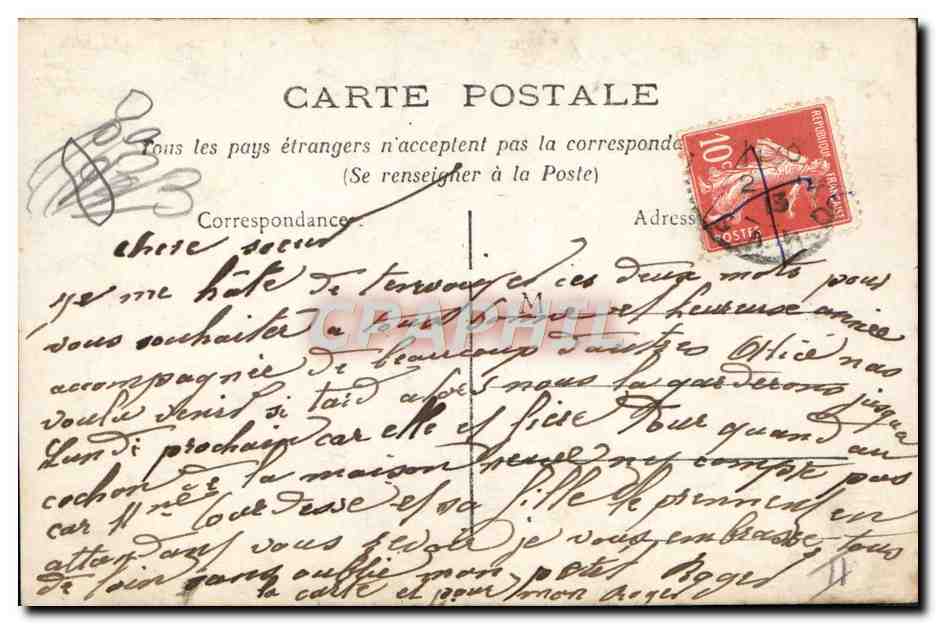 CARTE POSTALE
Tous les pays étrangers n'acceptent pas la corresponda
(Se renseigner à la Poste)
10c
REPUBLIQUE FRANÇAISE
POSTES
Correspondance
Adress
M
CPAPHIL
chere soeur
je me hâte de tenvoiyet ces deux mots pour
vous souhaiter a tous bonne et heureuse année
accompagnée de beaucoup d'autres nas
voulu venir si tard alors nous la garderons jusqua
Lundi prochain car elle et fiere Pour quand au
cochon de la maison ny compte pas
car Mme Lourdesse et sa fille le prennent en
attendant vous revoir je vous embrasse tous
de loin sans oublie mon petit Roger
la carte et pour mon Roger